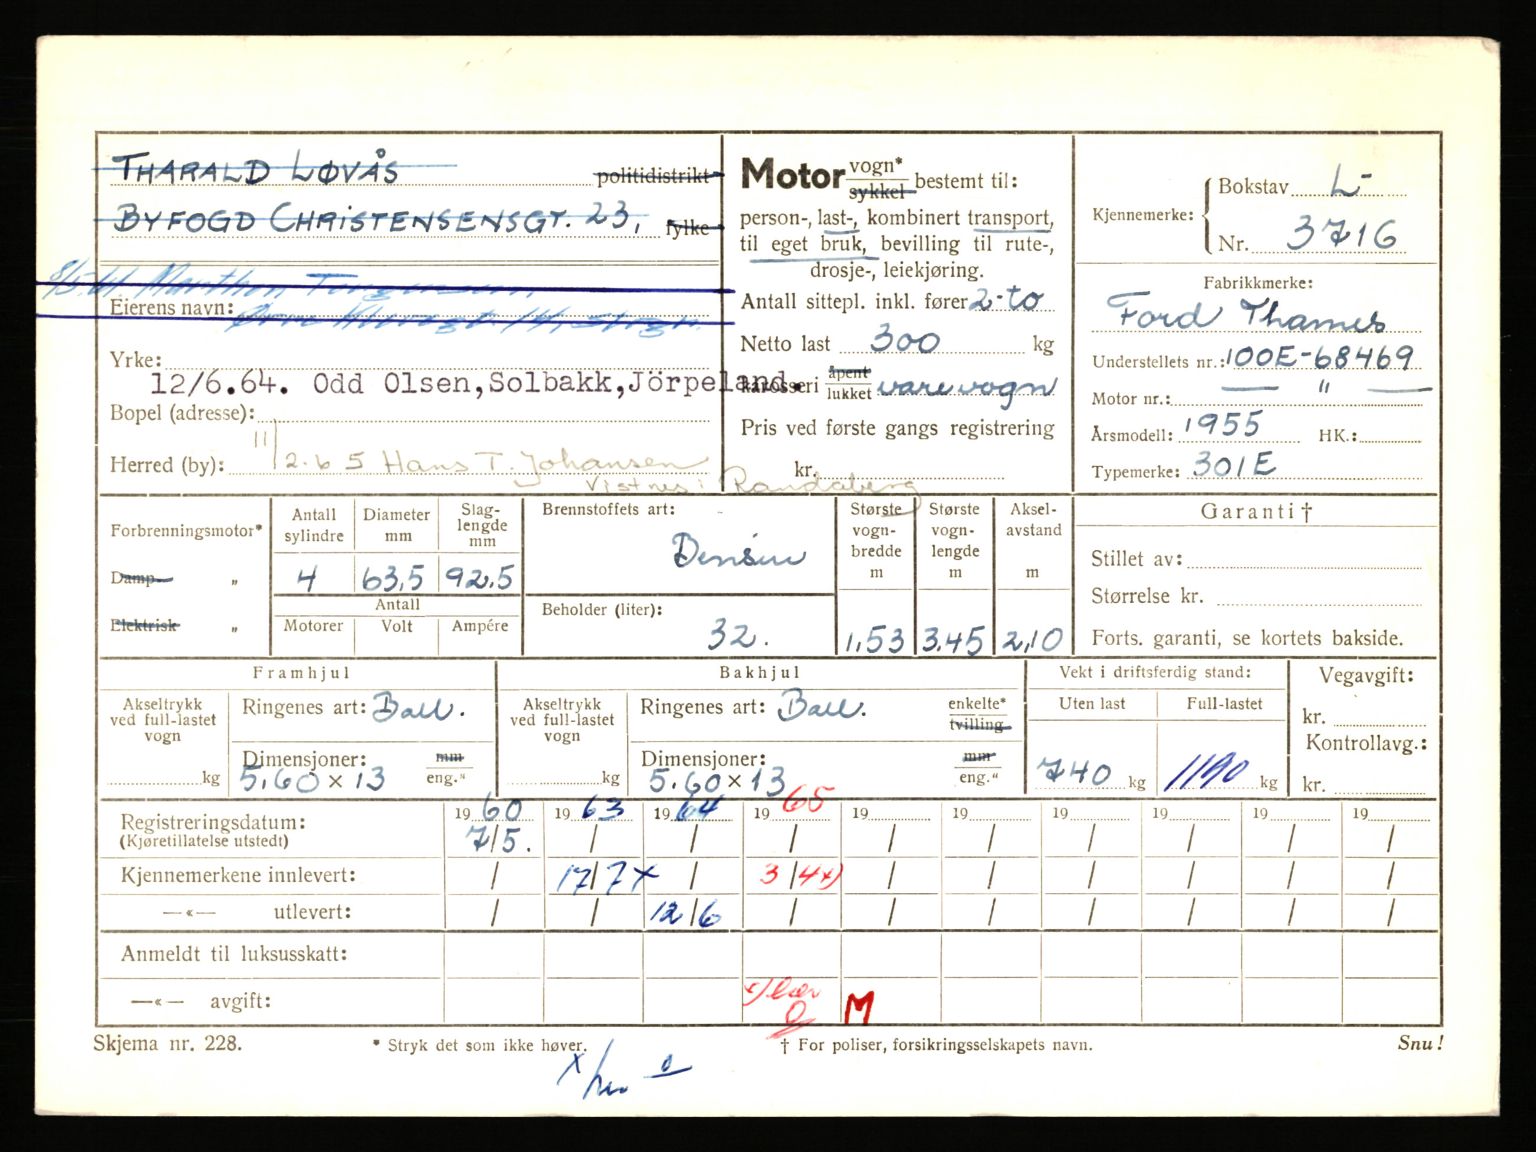 THARALD LØVÅS politidistrikt
BYFOGD CHRISTENSENSGT. 23, fylke
8/5.61
Eierens navn:
Yrke:
12/6.64. Odd Olsen,Solbakk,Jörpeland.
Bopel (adresse):
11/2.65 Hans T. Johansen
Herred (by):
Vistnes i Randaberg
Motor vogn* sykkel bestemt til:
person-, last-, kombinert transport,
til eget bruk, bevilling til rute-,
drosje-, leiekjøring.
Antall sittepl. inkl. fører 2-to
Netto last 300 kg
karosseri åpent lukket varevogn
Pris ved første gangs registrering
kr.
Kjennemerke: Bokstav L-
Nr. 3716
Fabrikkmerke:
Ford Thames
Understellets nr.: 100E-68469
Motor nr.: — " —
Årsmodell: 1955 HK.:
Typemerke: 301E
Forbrenningsmotor*
Damp- "
Elektrisk "
Antall sylindre 4
Diameter mm 63,5
Slag-lengde mm 92,5
Antall
Motorer Volt Ampére
Brennstoffets art:
Bensin
Beholder (liter):
32.
Største vogn-bredde m 1,53
Største vogn-lengde m 3.45
Aksel-avstand m 2,10
Garanti †
Stillet av:
Størrelse kr.
Forts. garanti, se kortets bakside.
Framhjul
Akseltrykk ved full-lastet vogn kg
Ringenes art: Ball.
Dimensjoner: mm
5.60 x 13 eng."
Bakhjul
Akseltrykk ved full-lastet vogn kg
Ringenes art: Ball. enkelte* tvilling
Dimensjoner: mm
5.60 x 13 eng."
Vekt i driftsferdig stand:
Uten last Full-lastet
740 kg 1190 kg
Vegavgift:
kr.
Kontrollavg.:
kr.
Registreringsdatum: 1960 1963 1964 1965 19 19 19 19 19 19
(Kjøretillatelse utstedt) 7/5. / / / / / / / / /
Kjennemerkene innlevert: / 17/7 x / 3/4 x) / / / / / /
—«— utlevert: / / 12/6 / / / / / / /
Anmeldt til luksusskatt:
—«— avgift: x) M
Skjema nr. 228. * Stryk det som ikke høver. † For poliser, forsikringsselskapets navn. Snu!
x/